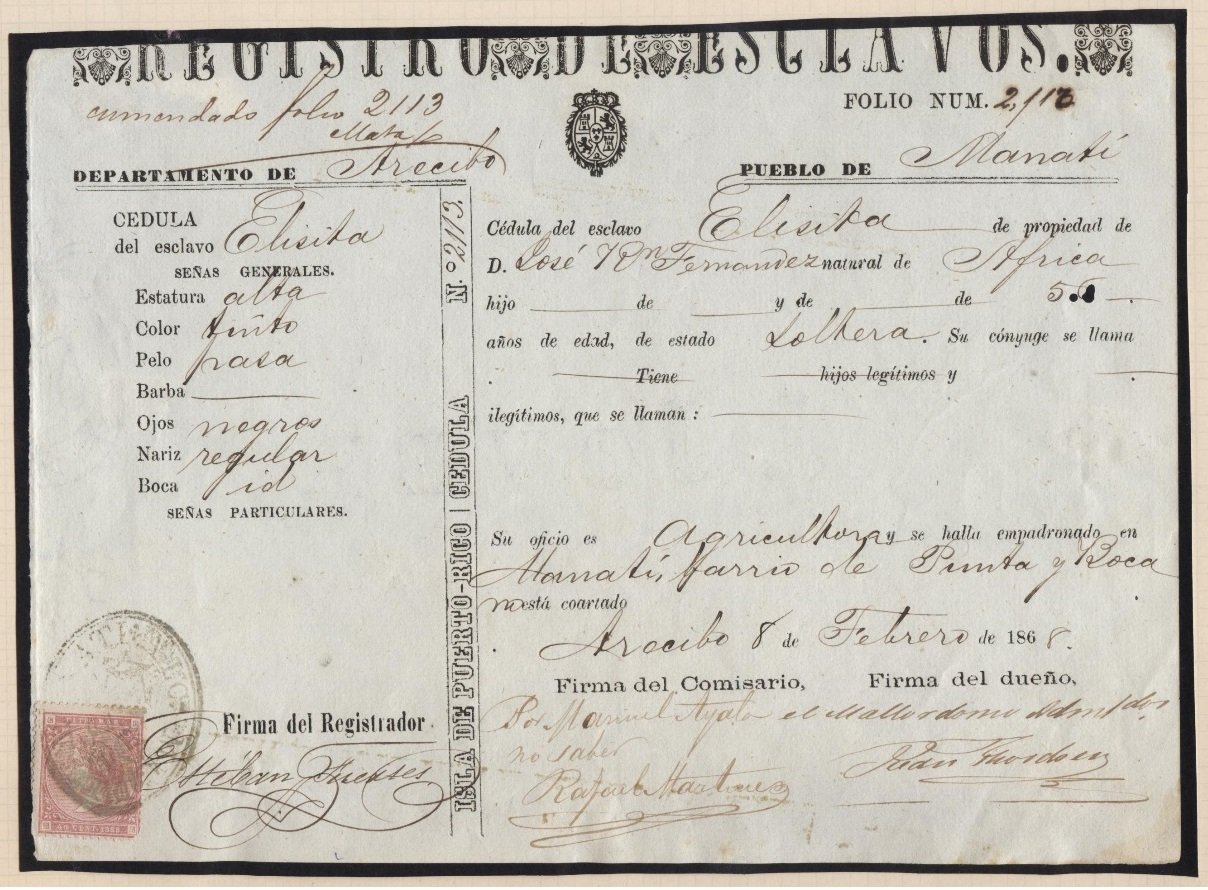 REGISTRO DE ESCLAVOS.
enmendado folio 2113
FOLIO NUM. 2,113
DEPARTAMENTO DE Arecibo
PUEBLO DE Manatí
CEDULA
del esclavo Elisita
SEÑAS GENERALES.
Estatura alta
Color tinto
Pelo pasa
Barba
Ojos negros
Nariz regular
Boca id
SEÑAS PARTICULARES.
Firma del Registrador
Esteban
ISLA DE PUERTO-RICO | CEDULA N.º 2113.
Cédula del esclavo Elisita de propiedad de
D. José Rn Fernandez natural de Africa
hijo de y de de 5
años de edad, de estado Soltera. Su cónyuge se llama
Tiene hijos legítimos y
ilegítimos, que se llaman :
Su oficio es Agricultora y se halla empadronado en
Manatí, barrio de Punta y Boca
no está coartado
Arecibo 8 de Febrero de 1868.
Firma del Comisario, Firma del dueño,
Por Manuel Ayala el Mallordomo
no saber
Rafael Martinez
Juan
ULTRAMAR
50 CENT. 1868